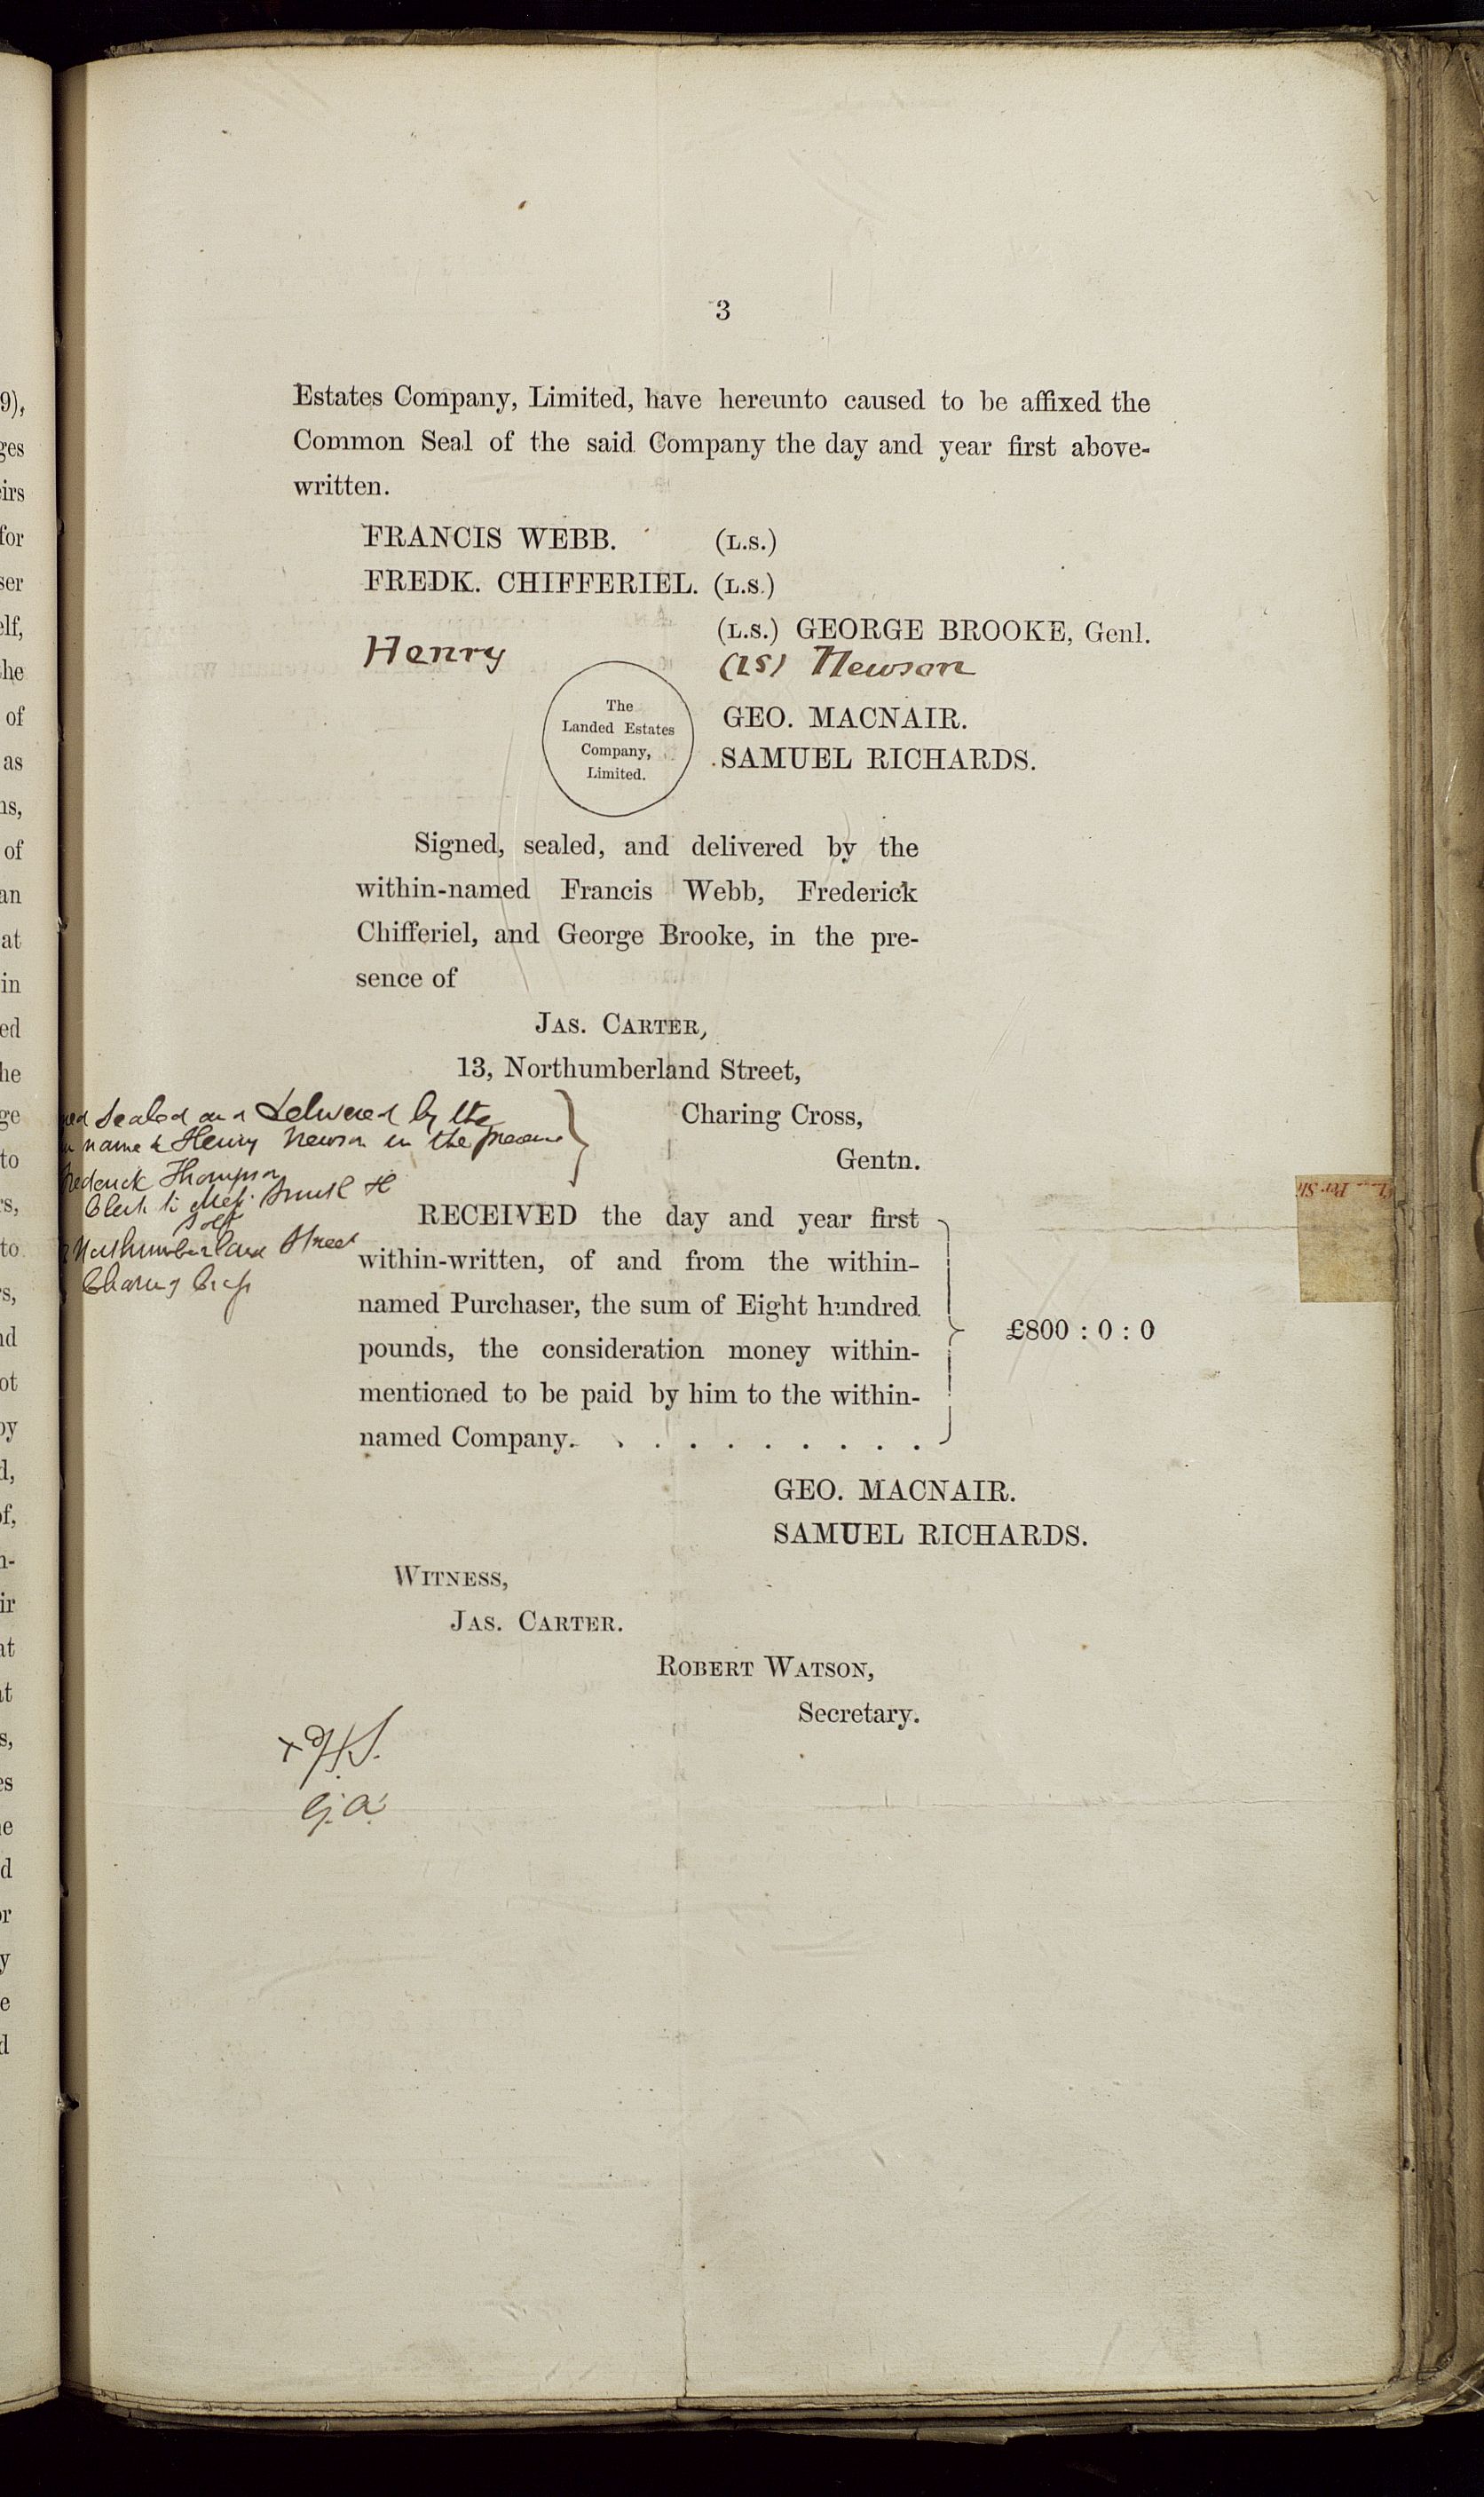 3
Estates Company, Limited, have hereunto caused to be affixed the
Common Seal of the said Company the day and year first above-
written.
FRANCIS WEBB. (L.S.)
FREDK. CHIFFERIEL. (L.S.)
(L.S.) GEORGE BROOKE, Genl.
Henry (LS) Newson
The
Landed Estates
Company,
Limited.
GEO. MACNAIR.
SAMUEL RICHARDS.
Signed, sealed, and delivered by the
within-named Francis Webb, Frederick
Chifferiel, and George Brooke, in the pre-
sence of
JAS. CARTER,
13, Northumberland Street,
Charing Cross,
Gentn.
Sealed and Delivered by the
name d Henry Newson in the presence
Frederick Thompson
Clerk to Messrs Smith
Northumberland Street
Charing Cross
RECEIVED the day and year first
within-written, of and from the within-
named Purchaser, the sum of Eight hundred
pounds, the consideration money within-
mentioned to be paid by him to the within-
named Company. . . . . . . . .
£800 : 0 : 0
GEO. MACNAIR.
SAMUEL RICHARDS.
WITNESS,
JAS. CARTER.
ROBERT WATSON,
Secretary.
9),
ges
eirs
for
ser
elf,
the
of
as
ns,
of
an
at
in
ed
he
ge
to
rs,
to
s,
nd
ot
by
d,
of,
n-
ir
at
t
s,
es
e
d
or
y
e
d